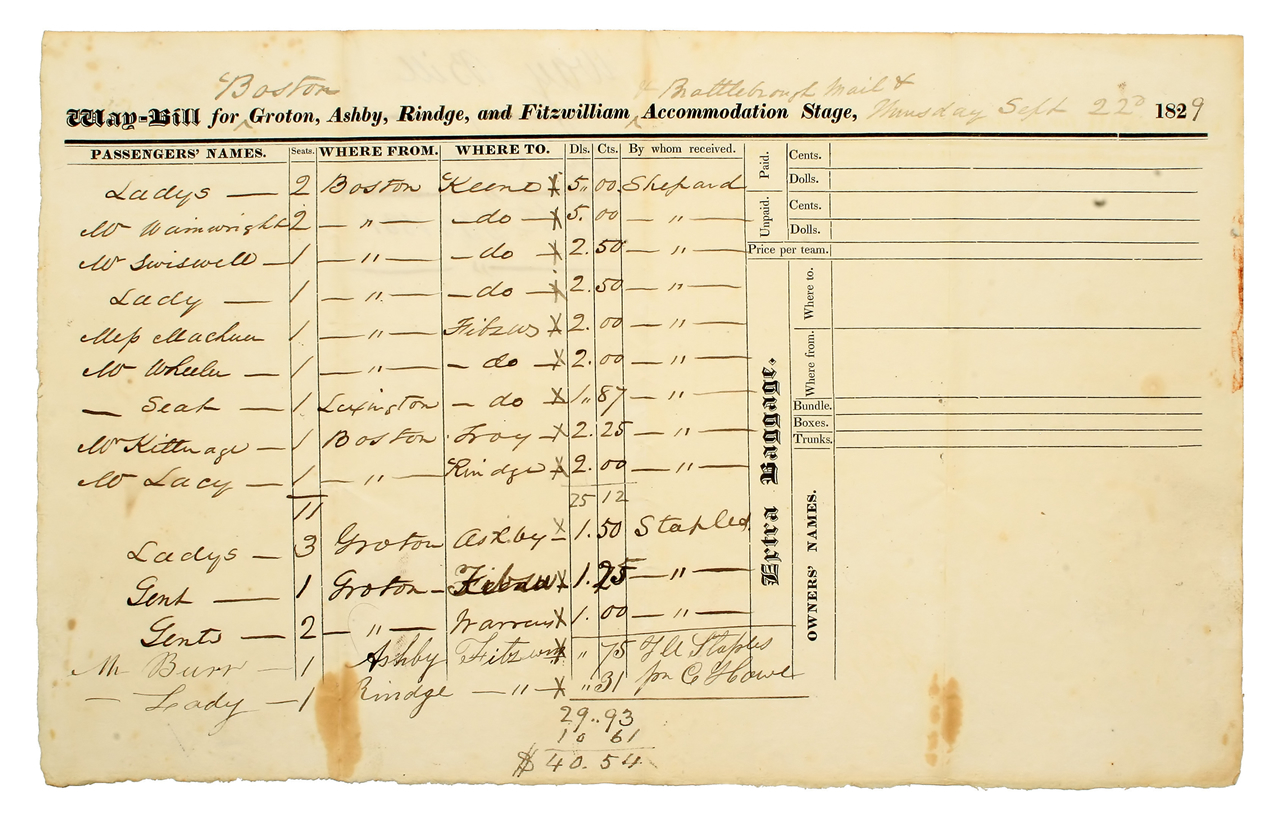 Boston & Brattleborough Mail &
Way-Bill for Groton, Ashby, Rindge, and Fitzwilliam Accommodation Stage, Thursday Sept 22d 1829
PASSENGERS' NAMES. Seats. WHERE FROM. WHERE TO. Dls. Cts. By whom received.
Ladys — 2 Boston Keene X 5 " 00 Shepard
Mr Wainwright 2 — " — — do — X 5. 00 — " —
Mr Swiswell — 1 — " — — do — X 2. 50 — " —
Lady — 1 — " — — do — X 2. 50 — " —
1 — " — Fitzw X 2. 00 — " —
Mr Wheeler — 1 — " — — do — X 2. 00 — " —
— Seat — 1 Lexington — do X 1 " 87 — " —
Mr Kittredge — 1 Boston Troy — X 2. 25 — " —
Mr Lacy — 1 — " — Rindge X 2. 00 — " —
11 25 12
Ladys — 3 Groton Ashby X 1. 50 Staples
Gent — 1 Groton — X 1. 25 — " —
Gents — 2 — " — X 1. 00 — " —
Mr Burr — 1 Ashby Fitzwm X " 75 Staples
— Lady — 1 Rindge — " — X " 31 pr C Howe
29 .. 93
10 61
$ 40. 54
Paid. Cents.
Dolls.
Unpaid. Cents.
Dolls.
Price per team.
Extra Baggage.
Where to.
Where from.
Bundle.
Boxes.
Trunks.
OWNERS' NAMES.